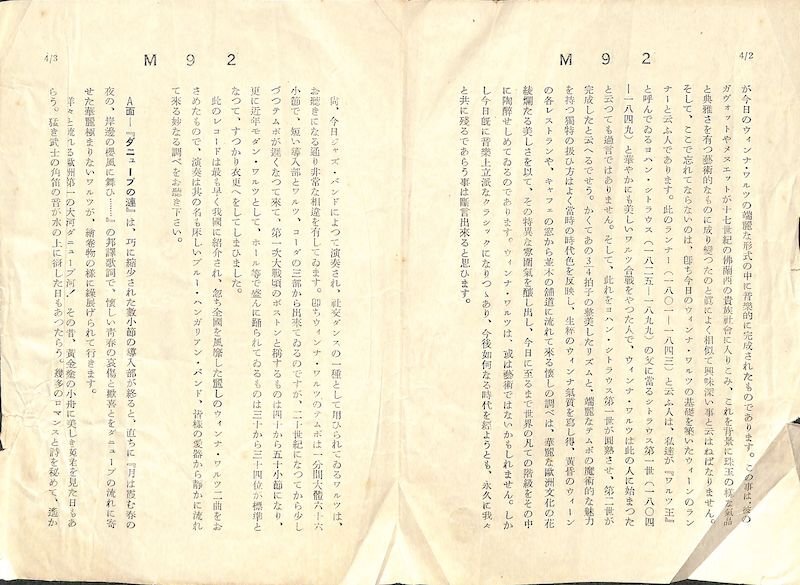 4/2
M92
が今日のウィンナ・ワルツの端麗な形式の中に音樂的に完成されたものであります。この事は、彼の
ガヴォットやメヌエットが十七世紀の佛蘭西の貴族社會に入りこみ、これを背景に珠玉の様な氣品
と典雅さを有つ藝術的なものに成り變つたのと眞によく相似て興味深い事と云はねばなりません。
そして、ここで忘れてならないのは、卽ち今日のウィンナ・ワルツの基礎を築いたウィーンのラン
ナーと云ふ人であります。此のランナー(一八〇一―一八四三)と云ふ人は、私達が『ワルツ王』
と呼んでゐるヨハン・シトラウス(一八二五―一八九九)の父に當るシトラウス第一世(一八〇四
―一八四九)と華やかにも美しいワルツ合戰をやつた人で、ウィンナ・ワルツは此の人に始まつた
と云つても過言ではありません。そして、此れをヨハン・シトラウス第一世が圓熟させ、第二世が
完成したと云へるでせう。かくてあの3/4拍子の整美したリズムと、端麗なテムポの魔術的な魅力
を持つ獨特の扱ひ方はよく當時の時代色を反映し、生粹のウィンナ氣質を寫し得、黃昏のウィーン
の各レストランや、キャフェの窓から並木の舗道に流れて來る懷しの調べは、華麗な歐洲文化の花
綾爛たる美しさを以て、その特異な雰圍氣を釀し出し、今日に至るまで世界の凡ての階級をその中
に陶醉せしめてゐるのであります。ウィンナ・ワルツは、或は藝術ではないかもしれません。しか
し今日旣に音樂上立派なクラシックになりつゝあり、今後如何なる時代を經ようとも、永久に我々
と共に殘るであらう事は斷言出來ると思ひます。
4/3
M92
尙、今日ジャズ・バンドによつて演奏され、社交ダンスの一種として用ひられてゐるワルツは、
お聽きになる通り非常な相違を有してゐます。卽ちウィンナ・ワルツのテムポは一分間大體六十六
小節で、短い導入部とワルツ、コーダの三部から出來てゐるのですが、二十世紀になつてから少し
づつテムポが遲くなつて來て、第一次大戰頃のボストンと稱するものは四十から五十小節になり、
更に近年モダン・ワルツとして、ホール等で盛んに踊られてゐるものは三十から三十四位が標準と
なつて、すつかり衣更へをしてしまひました。
此のレコードは最も早く我國に紹介され、忽ち全國を風靡した麗しのウィンナ・ワルツ二曲をお
さめたもので、演奏は其の名も床しいブルー・ハンガリアン・バンド、皆様の愛器から靜かに流れ
て來る妙なる調べをお聽き下さい。
A面―『ダニューブの漣』は、巧に縮少された數小節の導入部が終ると、直ちに『月は霞む春の
夜の、岸邊の櫻風に舞ひ……』の邦譯歌詞で、懷しい靑春の哀傷と歡喜とをダニューブの流れに寄
せた華麗極まりないワルツが、繪卷物の樣に繰展げられて行きます。
洋々と流れる歐洲第一の大河ダニューブ河!、その昔、黃金塗の小舟に美しき を見た日もあ
らう。猛き武士の角笛の音が水の上に谺した日もあつたらう。幾多のロマンスと詩を秘めて、遙か